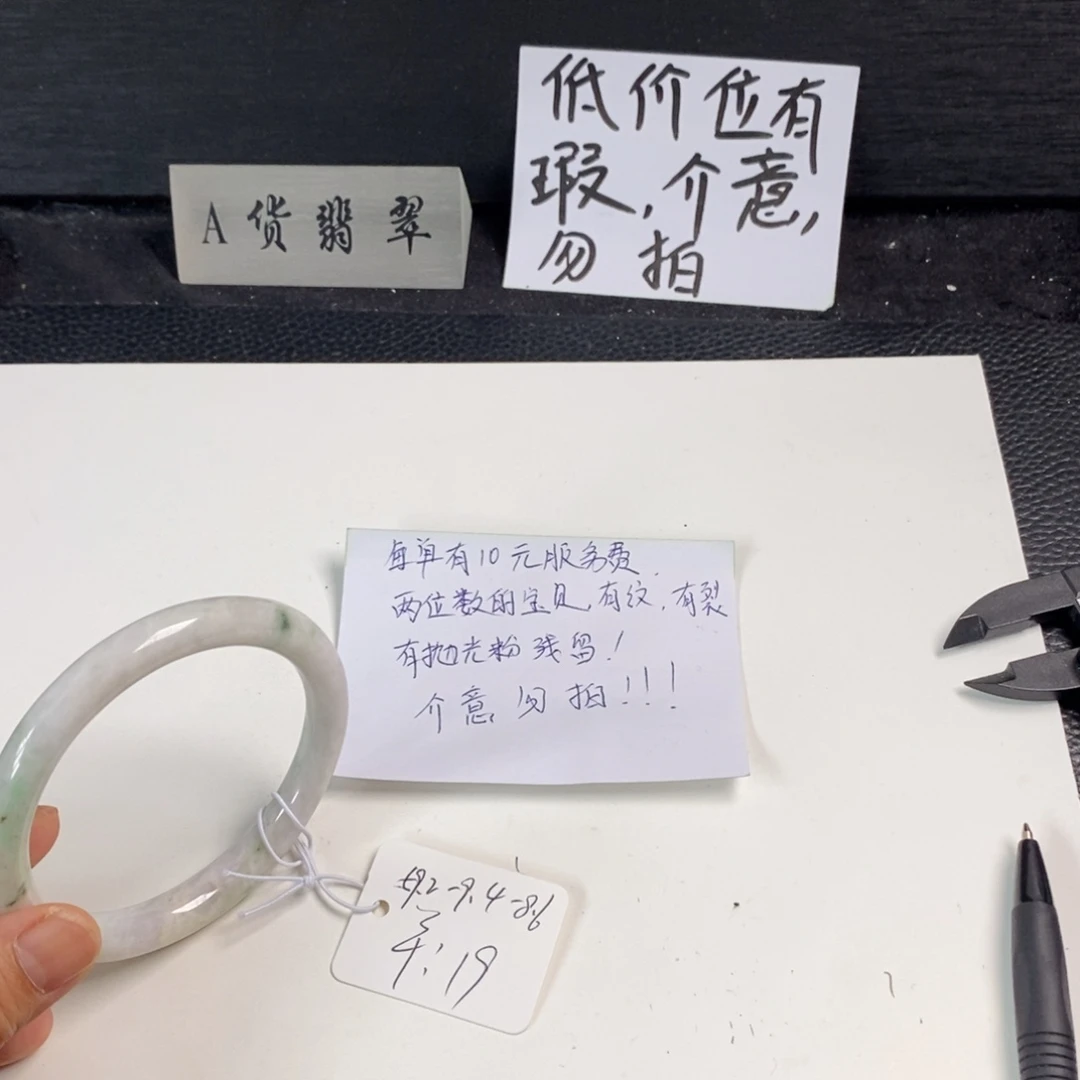 低价位有
瑕,介意,
勿拍
A货翡翠
每单有10元服务费.
两位数的宝贝,有纹,有裂
有抛光粉残留!
介意勿拍!!!
-9.4-8.6
4:19